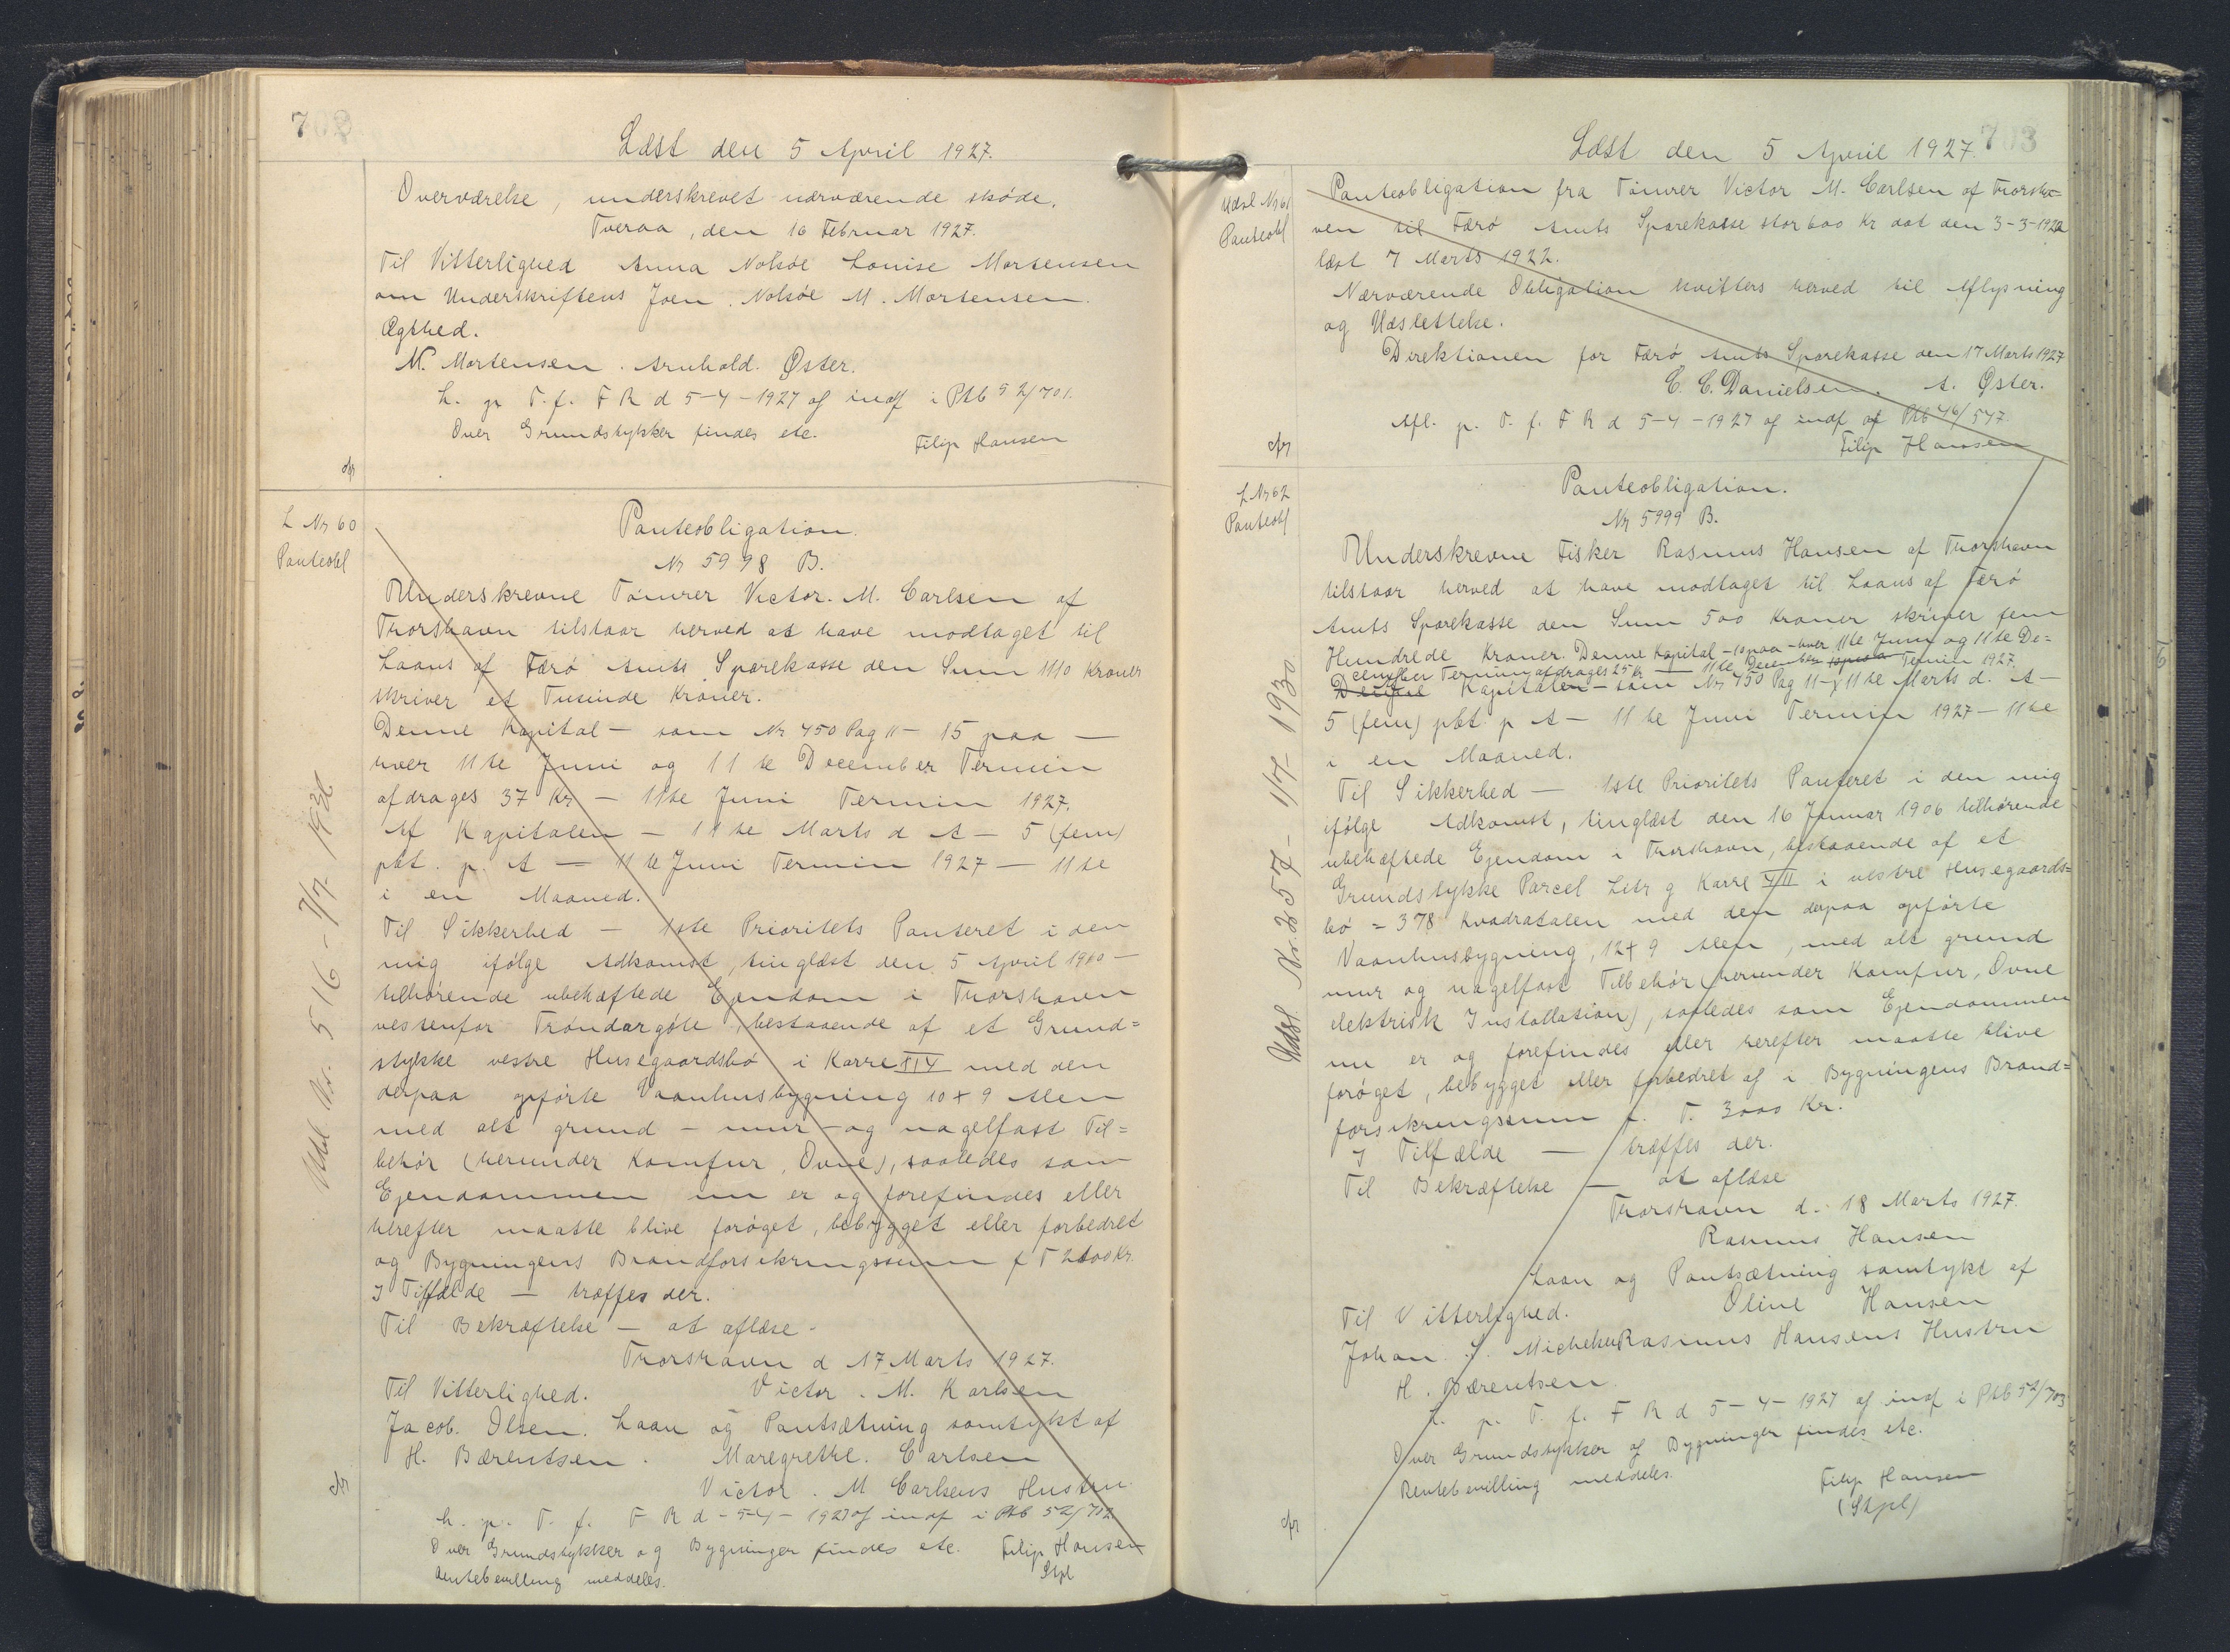 702
Læst den 5 April 1927.
Overværelse, underskrevet nærværende skøde.
Tveraa, den 16 Februar 1927.
Til Vitterlighed Anna Nolsøe Louise Mortensen
om Underskriftens Joen. Nolsøe M. Mortensen.
Ægthed.
M. Mortensen. Arnhold. Øster.
L. p. T. f. F R d 5-4-1927 og indf i Ptb 52/701.
Over Grundstykker findes etc.
Filip Hansen
cfr
L Nr 60
Panteobl
Panteobligation.
Nr 5998 B.
Underskrevne Tømrer Victor. M. Carlsen af
Thorshavn tilstaar herved at have modtaget til
Laans af Færø Amts Sparekasse den Sum 1110 Kroner
skriver et Tusinde Kroner.
Denne Kapital - som Nr 450 Pag 11 - 15 paa -
hver 11te Juni og 11te December Termin
afdrages 37 Kr - 11te Juni Termin 1927.
Af Kapitalen - 11te Marts d A - 5 (fem)
pct. p. A - 11te Juni Termin 1927 - 11te
i en Maaned.
Til Sikkerhed - 1ste Prioritets Panteret i den
mig ifølge Adkomst, tinglæst den 5 April 1910 -
tilhørende ubehæftede Ejendom i Thorshavn
vestenfor Trøndargøte, bestaaende af et Grund=
stykke vestre Husegaardsbø i Karre XIV med den
derpaa opførte Vaanhusbygning 10 x 9 Alen
med alt grund - mur - og nagelfast Til=
behør (herunder Komfur, Ovne), saaledes som
Ejendommen nu er og forefindes eller
herefter maatte blive forøget, bebygget eller forbedret
og Bygningens Brandforsikringssum f T 2400 Kr.
I Tilfælde - træffes der.
Til Bekræftelse - at aflæse.
Thorshavn d 17 Marts 1927.
Til Vitterlighed. Victor. M. Karlsen
Jacob. Olsen. Laan og Pantsætning samtykt af
H. Bærentsen. Maregrethe. Carlsen
Victor. M Carlsens Hustru.
L. p. T. f. F R d - 5-4-1927 og indf i Ptb 52/702.
Over Grundstykker og Bygninger findes etc. Filip Hansen
Rentebevilling meddeles. Stpl
cfr
Udsl Nr. 516 - 7/7-
703
Læst den 5 April 1927.
Udsl Nr 61
Panteobl
Panteobligation fra Tømrer Victor M. Carlsen af Thorsha=
ven til Færø Amts Sparekasse stor 600 Kr dat den 3-3-1922
læst 7 Marts 1922.
Nærværende Obligation kvitters herved til Aflysning
og Udslettelse.
Direktionen for Færø Amts Sparekasse den 17 Marts 1927
C. C. Danielsen. A. Øster.
Afl. p. T. f. F R d 5-4-1927 og indf af Ptb 46/547.
Filip Hansen
cfr
L Nr 62
Panteobl
Panteobligation.
Nr 5999 B.
Underskrevne Fisker Rasmus Hansen af Thorshavn
tilstaar herved at have modtaget til Laans af Færø
Amts Sparekasse den Sum 500 Kroner skriver fem
Hundrede Kroner. Denne Kapital - 15 paa - hver 11te Juni og 11te De=
cember Termin afdrages 25 Kr - 11te December Termin 1927.
Kapitalen - som Nr 450 Pag 11 - 11te Marts d. A -
5 (fem) pct. p A - 11te Juni Termin 1927 - 11te
i en Maaned.
Til Sikkerhed - 1ste Prioritets Panteret i den mig
ifølge Adkomst, tinglæst den 16 Januar 1906 tilhørende
ubehæftede Ejendom i Thorshavn, bestaaende af et
Grundstykke Parcel Litr g Karre VII i vestre Husegaards=
bø = 378 kvadratalen med den derpaa opførte
Vaanhusbygning, 12 x 9 Alen, med alt grund
mur og nagelfast Tilbehør (herunder Komfur, Ovne
elektrisk Installation), saaledes som Ejendommen
nu er og forefindes eller herefter maatte blive
forøget, bebygget eller forbedret og i Bygningens Brand=
forsikringssum f. T. 3000 Kr.
I Tilfælde - træffes der.
Til Bekræftelse - at aflæse
Thorshavn d. 18 Marts 1927.
Rasmus Hansen
Laan og Pantsætning samtykt af
Til Vitterlighed. Oline Hansen
Johan. Michelsen Rasmus Hansens Hustru
H. Bærentsen.
L. p. T. f. F R d 5-4-1927 og indf i Ptb 52/703
Over Grundstykker og Bygninger findes etc.
Rentebevilling meddeles. Filip Hansen
(Stpl)
cfr
Udsl Nr. 257 - 1/7-1930